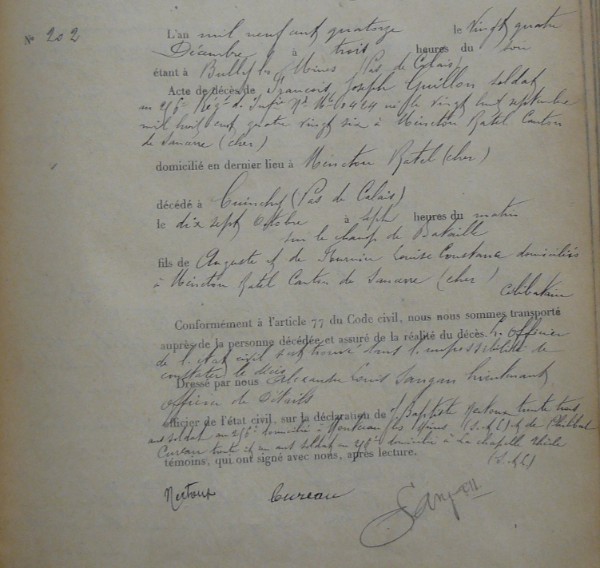 N° 202
L'an mil neuf cent quatorze le vingt quatre
Décembre à trois heures du soir
étant à Bully les Mines (Pas de Calais)
Acte de décès de François Joseph Guillon soldat
au 256e Régt de Infie né le vingt huit septembre
mil huit cent quatre vingt six à Menetou Ratel Canton
de Sancerre (Cher)
domicilié en dernier lieu à Menetou Ratel (Cher)
décédé à Cuinchy (Pas de Calais)
le dix sept Octobre à sept heures du matin
sur le champ de Bataille
fils de Auguste et de Louise Constance domiciliés
à Menetou Ratel Canton de Sancerre (Cher)
Célibataire
Conformément à l'article 77 du Code civil, nous nous sommes transporté
auprès de la personne décédée et assuré de la réalité du décès. L'officier
de l'état civil s'est trouvé dans l'impossibilité de
constater le décès
Dressé par nous Alexandre Louis Sangan lieutenant
officier de détails
officier de l'état civil, sur la déclaration de J. Baptiste Nectoux trente trois
ans soldat au 256e domicilié à Montceau les Mines (S. & L) et de
Cureau trente et un ans soldat au domicilié à La chapelle Thècle
témoins, qui ont signé avec nous, après lecture. (S. & L)
Nectoux Cureau Sangan